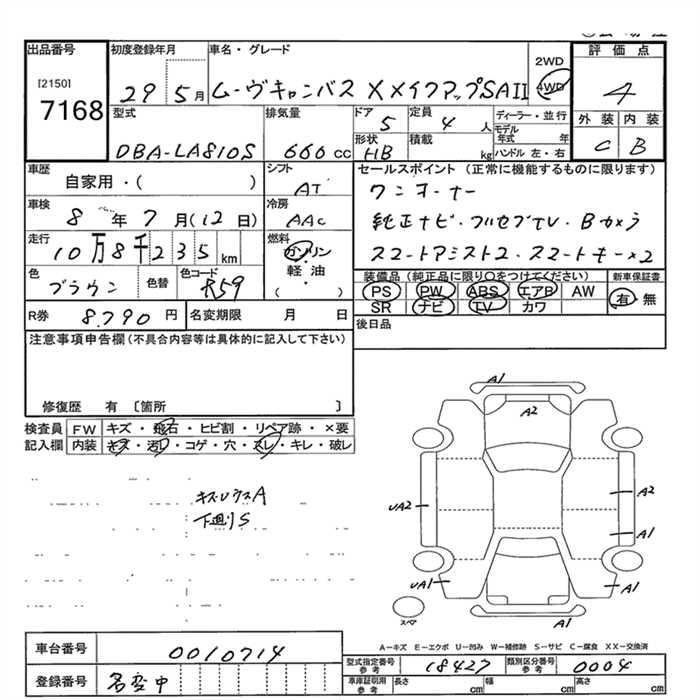 出品番号
[2150]
7168
初度登録年月
29 5月
車名・グレード
ムーヴキャンバス XメイクアップSAII
2WD
4WD
評価点
4
外装 内装
C B
型式
DBA-LA810S
排気量
660 cc
ドア
5
定員
4 人
形状
HB
積載
kg
ディーラー・並行
モデル年式 年
ハンドル 左・右
車歴
自家用・( )
シフト
AT
セールスポイント (正常に機能するものに限ります)
ワンオーナー
純正ナビ・フルセグTV・Bカメラ
スマートアシスト2・スマートキー×2
車検
8年7月(12日)
冷房
AAC
走行
10万8千235km
燃料
ガソリン
・軽油・
( )
色
ブラウン
色替
色コード
R59
装備品 (純正品に限り○をつけてください)
PS PW ABS エアB AW
SR ナビ TV カワ
新車保証書
有・無
R券 8,790 円
名変期限 月 日
後日品
注意事項申告欄(不具合内容等は具体的に記入して下さい)
修復歴 有 〔箇所 〕
検査員記入欄
FW キズ・飛石・ヒビ割・リペア跡・×要
内装 キズ・汚レ・コゲ・穴・スレ・キレ・破レ
キズUウスA
下廻りS
A1
A2
UA2
A2
A1
UA1
A1
A1
スペア
A-キズ E-エクボ U-凹み W-補修跡 S-サビ C-腐食 XX-交換済
車台番号 0010714
登録番号 名変中
型式指定番号 参考 18427
類別区分番号 参考 0004
車庫証明用 参考
長さ cm
幅 cm
高さ cm